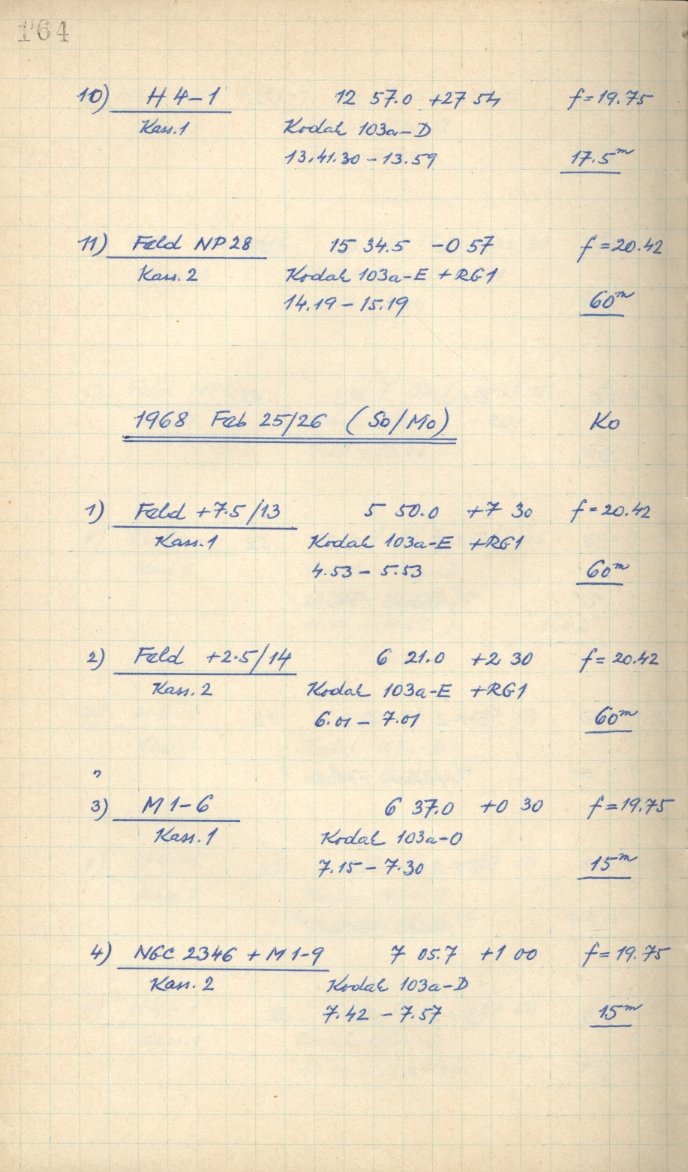 164
10) H 4-1 12 57.0 +27 54 f=19.75
Kass.1 Kodak 103a-D
13.41.30 - 13.59 17.5m
11) Feld NP28 15 34.5 -0 57 f=20.42
Kass.2 Kodak 103a-E +RG1
14.19 - 15.19 60m
1968 Feb 25/26 (So/Mo) Ko
1) Feld +7.5/13 5 50.0 +7 30 f=20.42
Kass.1 Kodak 103a-E +RG1
4.53 - 5.53 60m
2) Feld +2.5/14 6 21.0 +2 30 f=20.42
Kass.2 Kodak 103a-E +RG1
6.01 - 7.01 60m
?
3) M1-6 6 37.0 +0 30 f=19.75
Kass.1 Kodak 103a-O
7.15 - 7.30 15m
4) NGC 2346 + M1-9 7 05.7 +1 00 f=19.75
Kass.2 Kodak 103a-D
7.42 - 7.57 15m